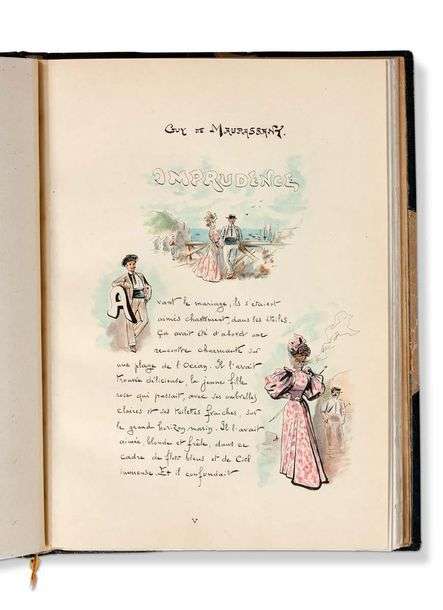 GUY DE MAUPASSANT.
IMPRUDENCE
Avant le mariage, ils s'étaient
aimés chastement, dans les étoiles.
Ça avait été d'abord une
rencontre charmante sur
une plage de l'Océan. Il l'avait
trouvée délicieuse, la jeune fille
rose qui passait, avec ses ombrelles
claires et ses toilettes fraîches, sur
le grand horizon marin. Il l'avait
aimée blonde et frêle, dans ce
cadre de flots bleus et de Ciel
immense. Et il confondait
V